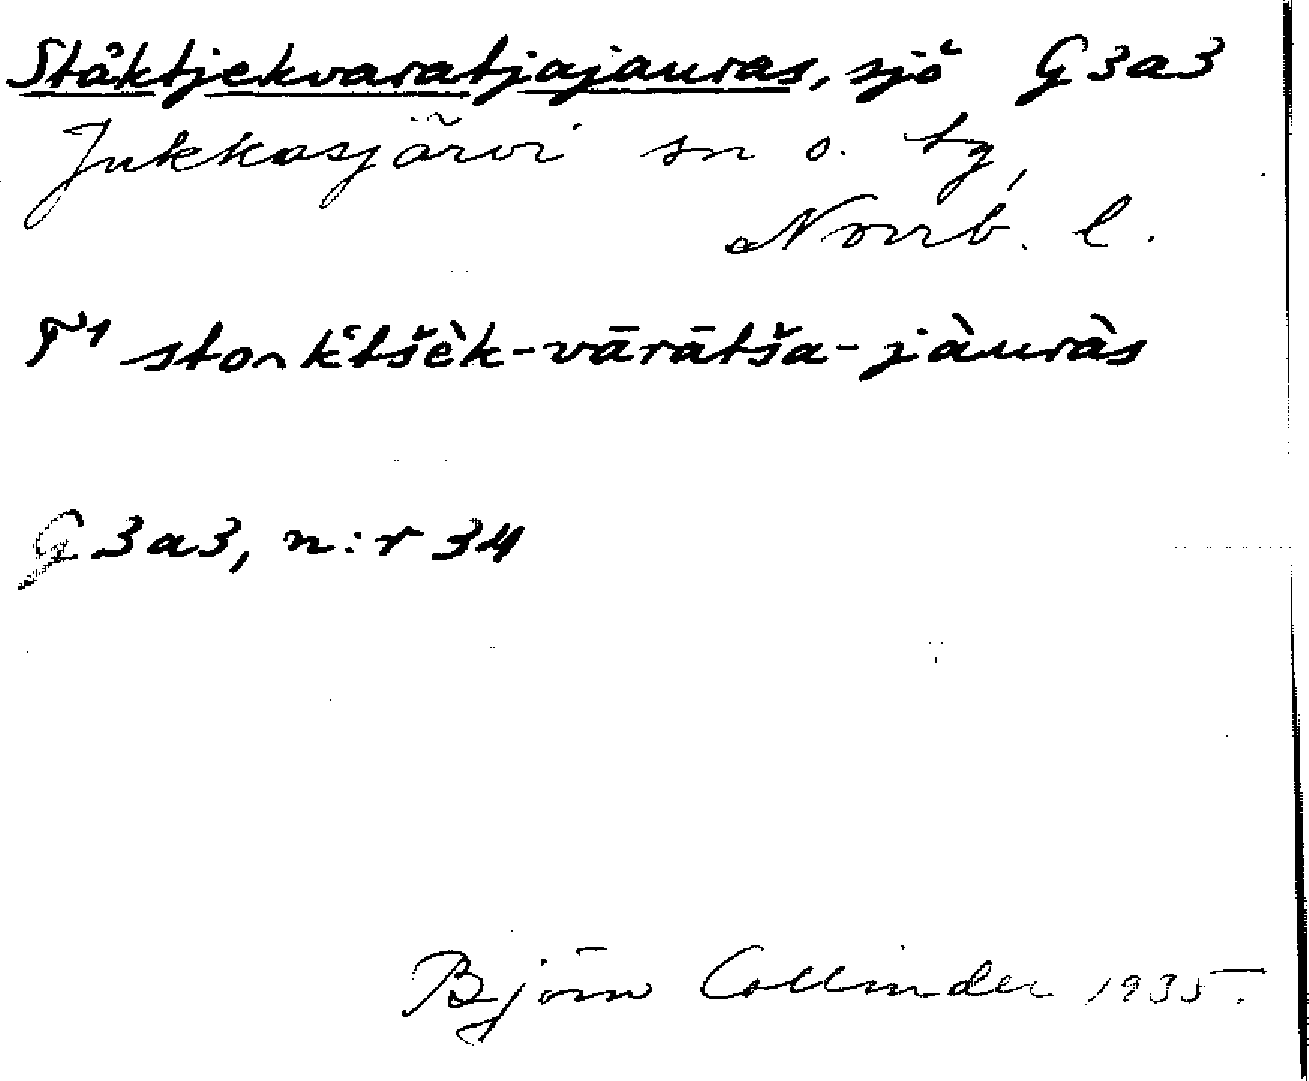 Ståktjekvaratjajauras, sjö G3a3
Jukkasjärvi sn o. tg,
Norrb. l.
F1 stoₙk̀tšèk-vārātša-jàuràs
G3a3, n:r 34
Björn Collinder 1935.